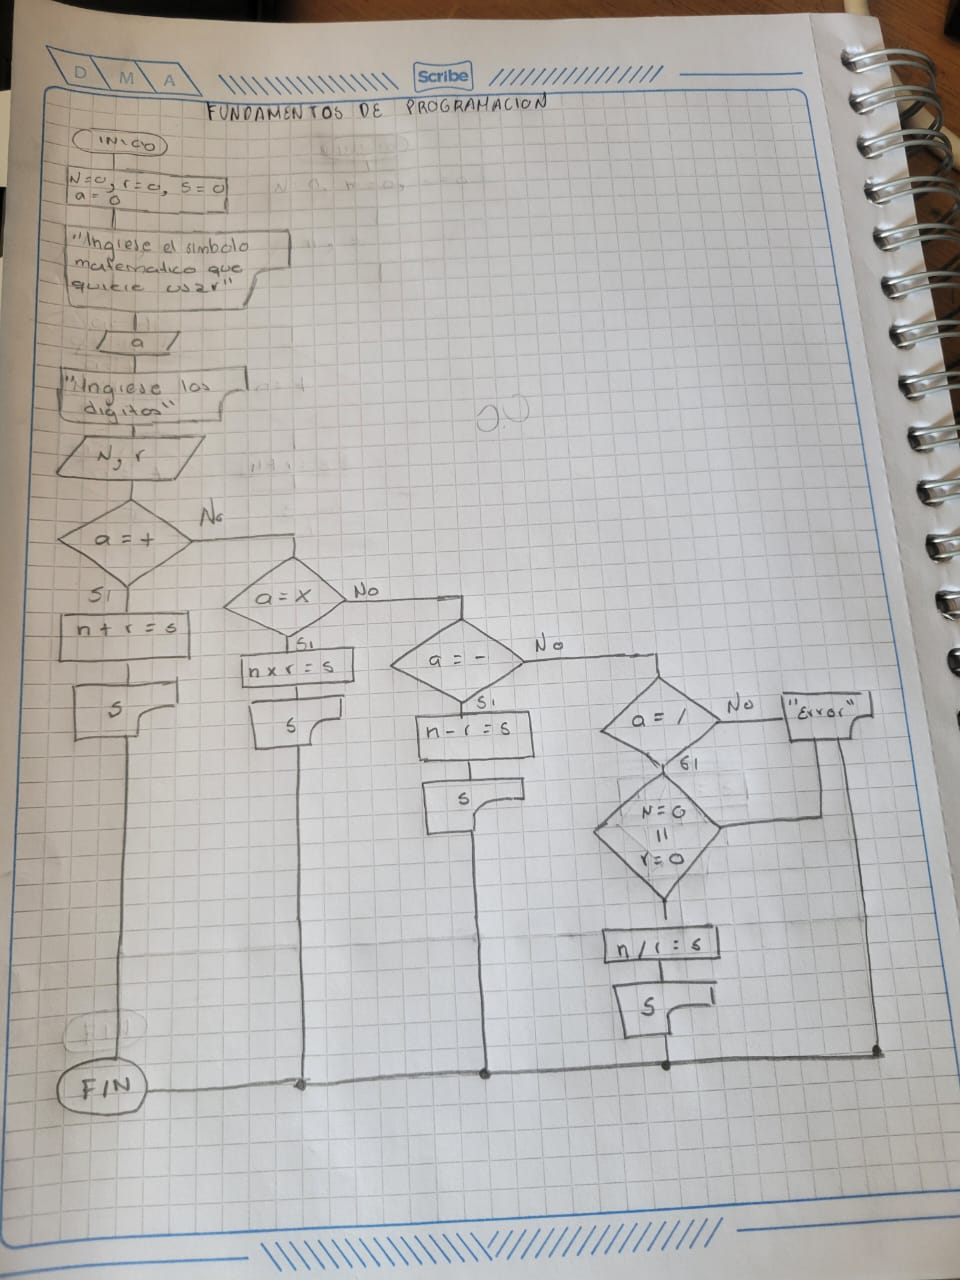 D M A
Scribe
FUNDAMENTOS DE PROGRAMACION
INICIO
N=0, r=0, S=0
a=0
"Ingrese el simbolo
matematico que
quiere usar"
a
"Ingrese los
digitos"
N, r
a = +
No
Si
n + r = s
S
a = x
No
Si
n x r = s
S
a = -
No
Si
n - r = s
S
a = /
No
"Error"
Si
N = 0
||
r = 0
n / r = s
S
FIN